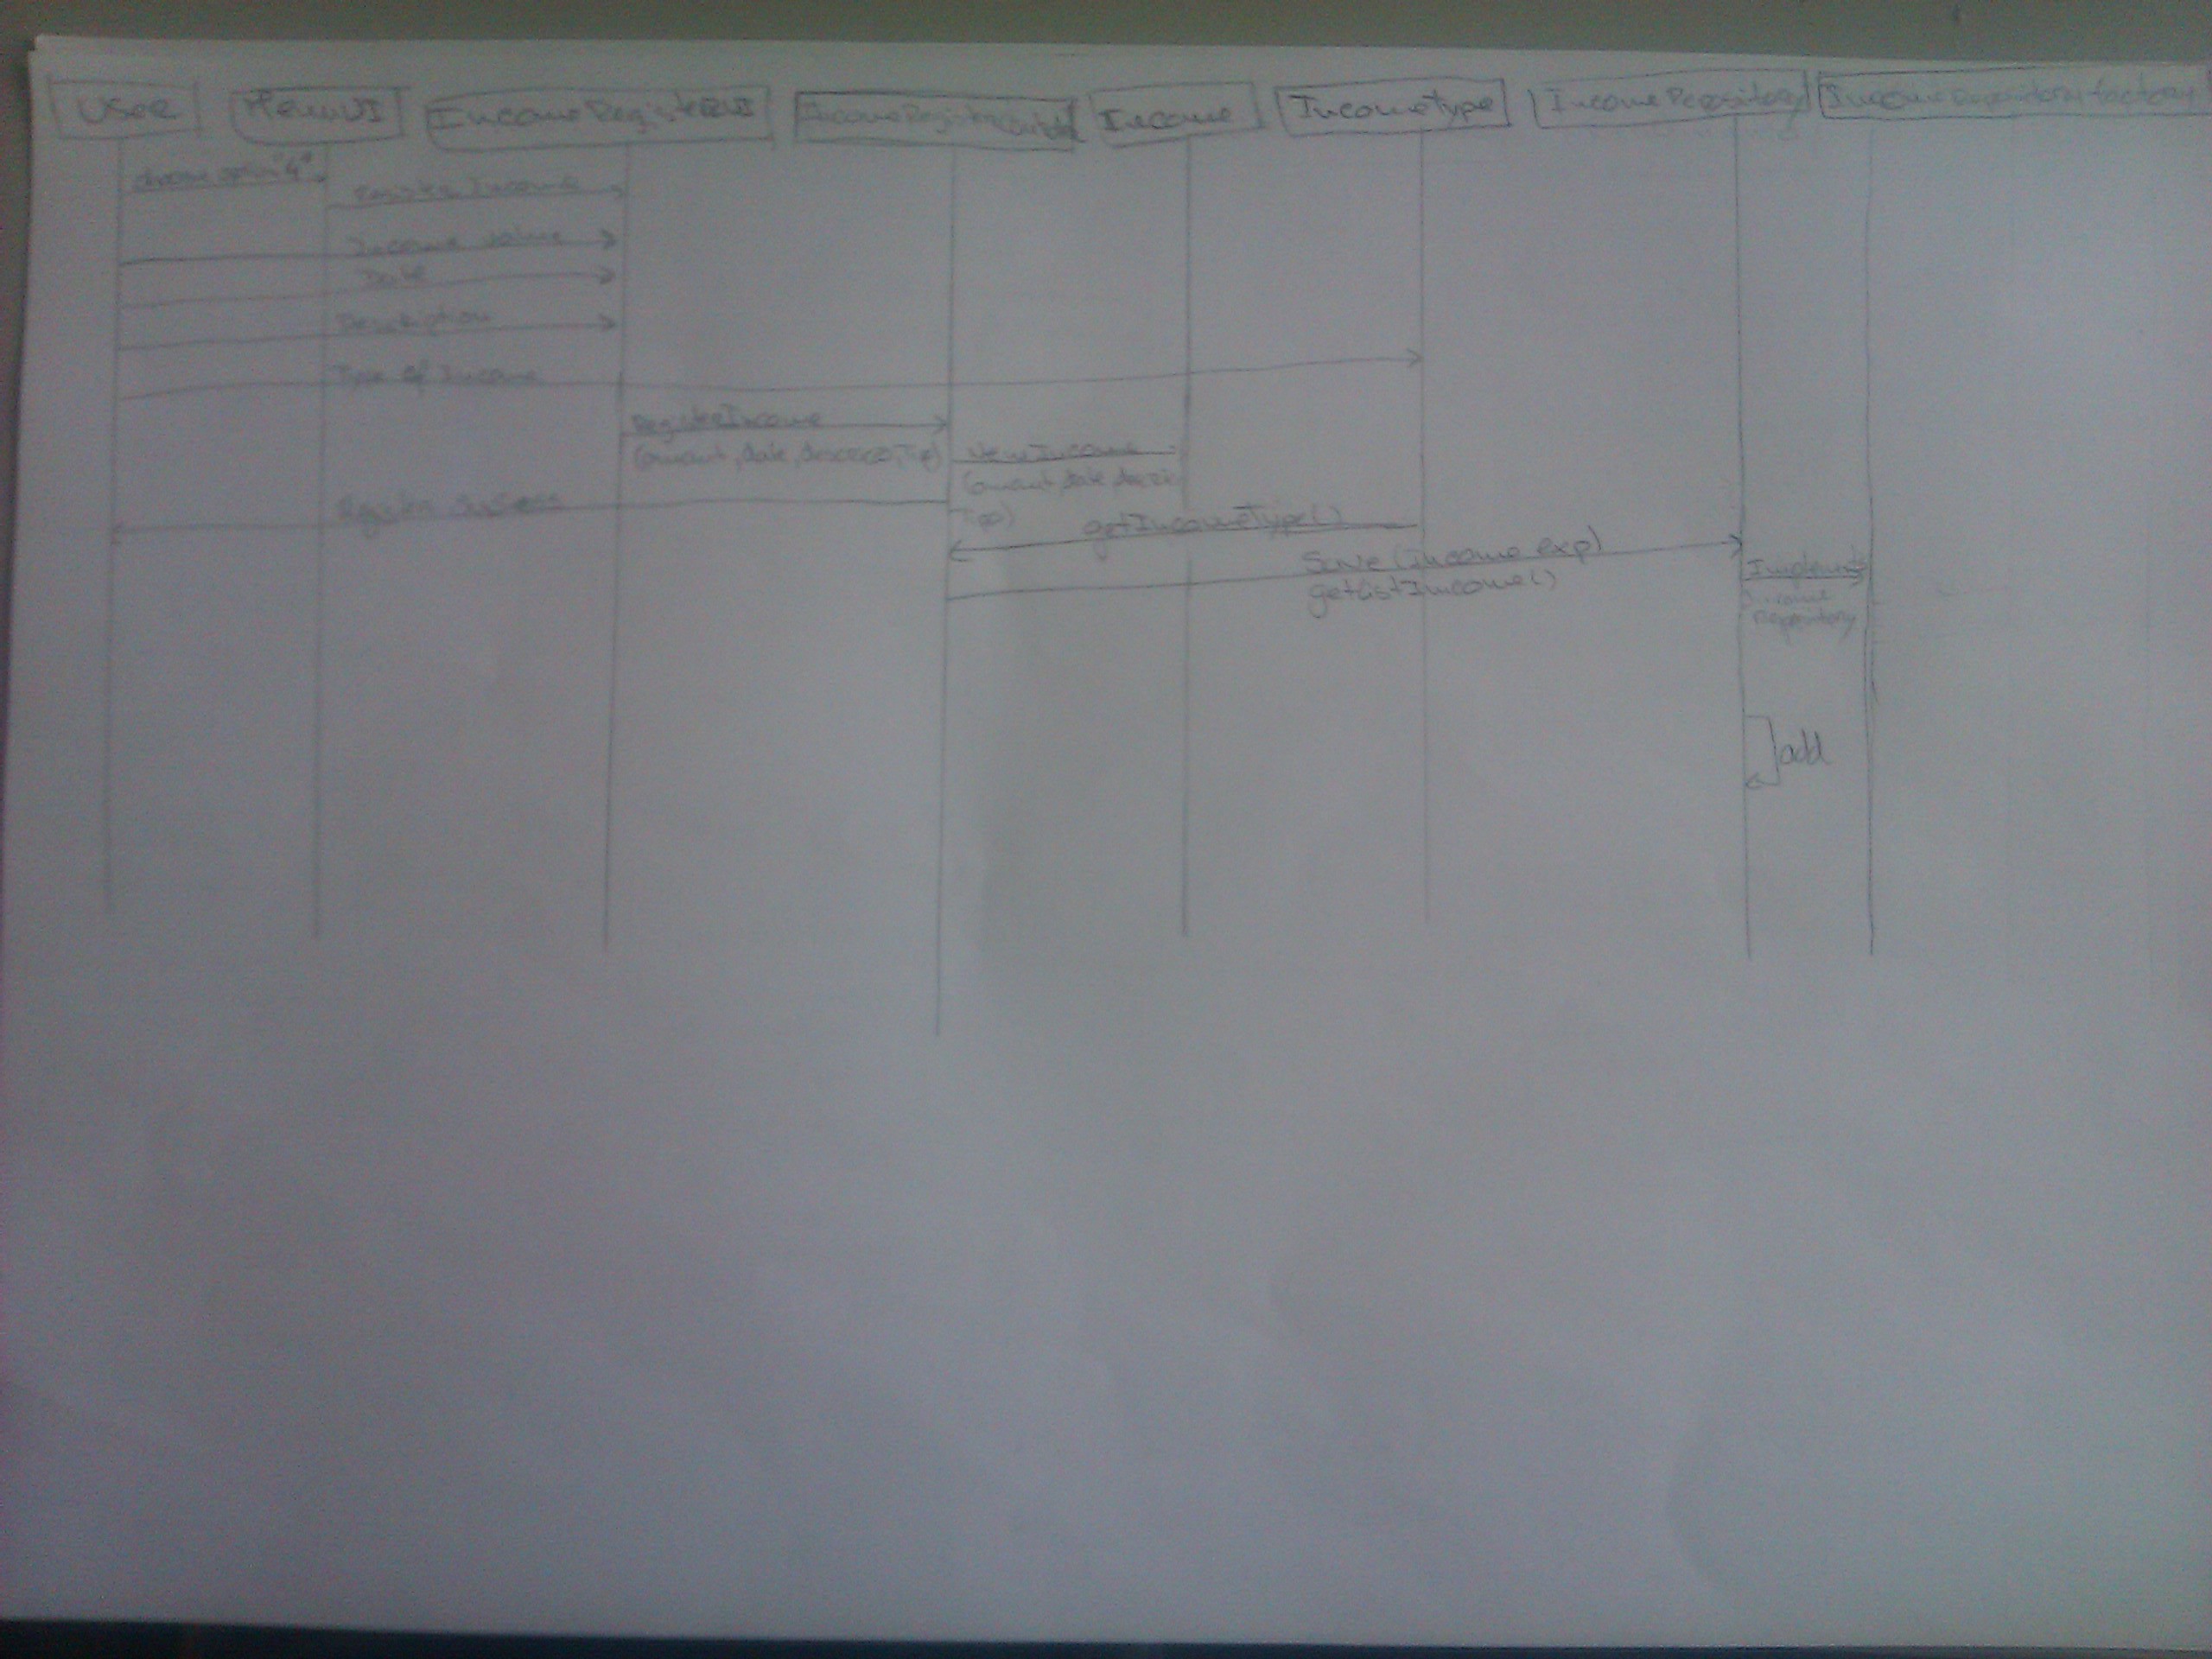 User
MenuUI
IncomeRegisterUI
IncomeRegister
Income
IncomeType
IncomeRepository
IncomeRepositoryfactory
choose option "4"
Register Income
Income value
Date
Description
Type of Income
RegisterIncome
(amount, date,
New Income
(amount, date,
Tipo)
Register Success
getIncomeType()
Save (Income exp)
getListIncome()
Implements
Income
repository
add